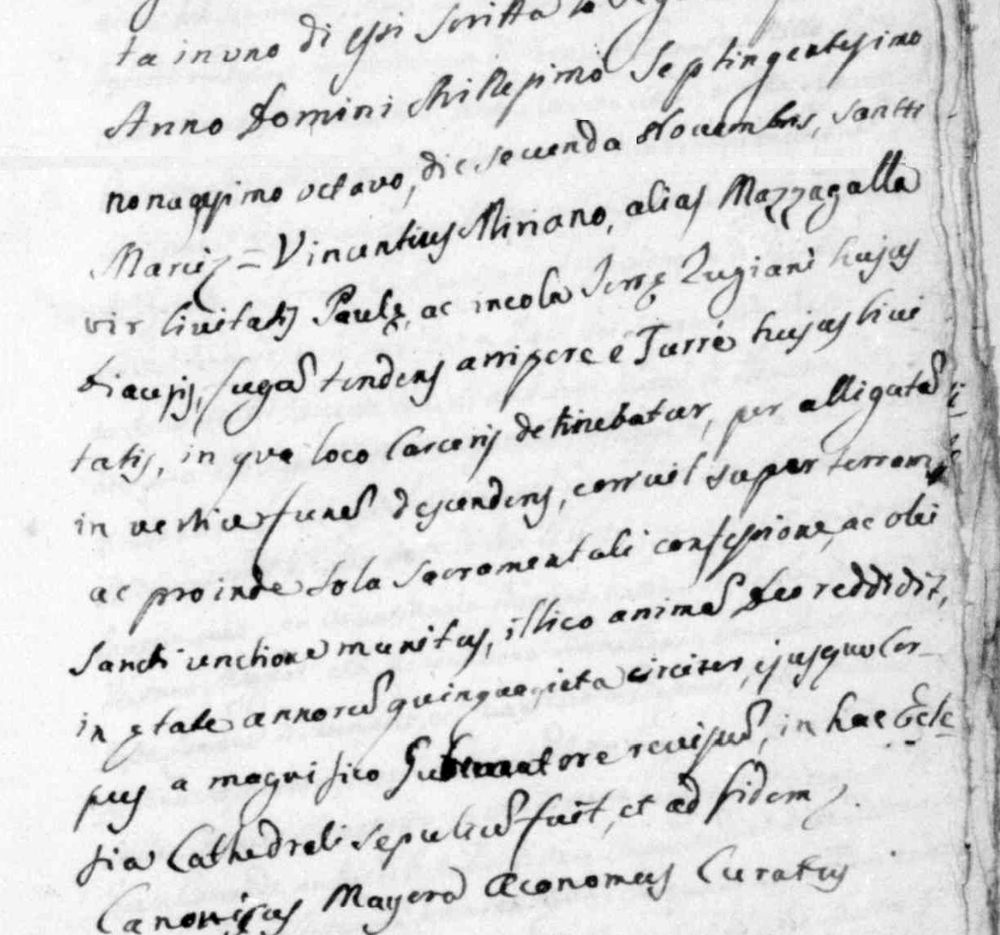 ta in uno di essi scritta
Anno Domini Millesimo Septingentesimo
nonagesimo octavo, die secunda Novembris, Sancti
Marci = Vincentius Miniano, alias Mazzagalla
vir Civitatis Paulę, ac incola Terrę Zugiani hujus
Diacesis, fugã tendens arripere è Turre hujus Civi
tatis, in qua loco Carceris detinebatur, per alligatã
in vertice funẽ descendens, corruit super terram
ac proinde sola Sacramentali confessione, ac olei
Sancti unctione munitus, illico animã Deo reddidit,
in ętate annorũ quinquaginta circiter, ejusque Cor-
pus a magnifico Gubernatore revisũ, in hac Eccle
sia Cathedrali sepultũ fuit, et ad fidem
Canonicus Mayerà Œconomus Curatus